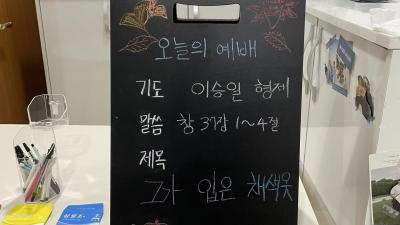 오늘의 예배
기도 이승일 형제
말씀 창 37장 1~4절
제목
그가 입은 채색옷